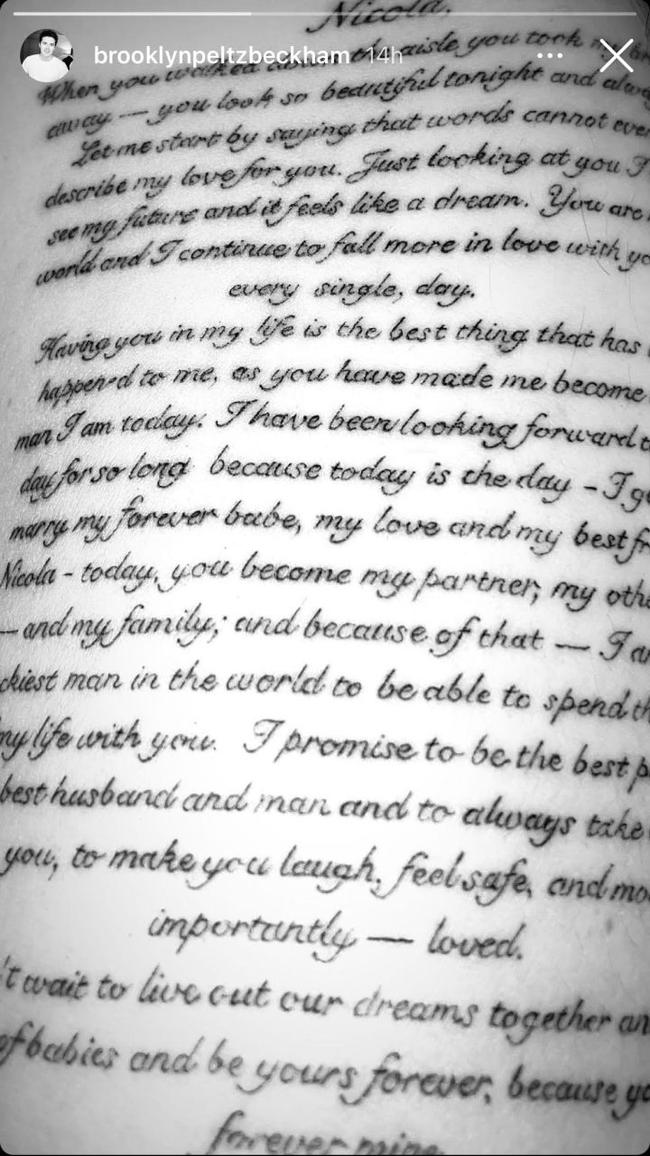 brooklynpeltzbeckham 14h
Nicola,
When you walked down the aisle you took my
away — you look so beautiful tonight and
Let me start by saying that words cannot
describe my love for you. Just looking at you I
see my future and it feels like a dream. You are
world and I continue to fall more in love with
every single, day.
Having you in my life is the best thing that has
happened to me, as you have made me become
man I am today. I have been looking forward
day for so long because today is the day – I
marry my forever babe, my love and my best
Nicola - today, you become my partner, my
— and my family; and because of that — I
man in the world to be able to spend
my life with you. I promise to be the best
best husband and man and to always take
you, to make you laugh, feel safe, and
importantly — loved.
wait to live out our dreams together
of babies and be yours forever, because
forever mine